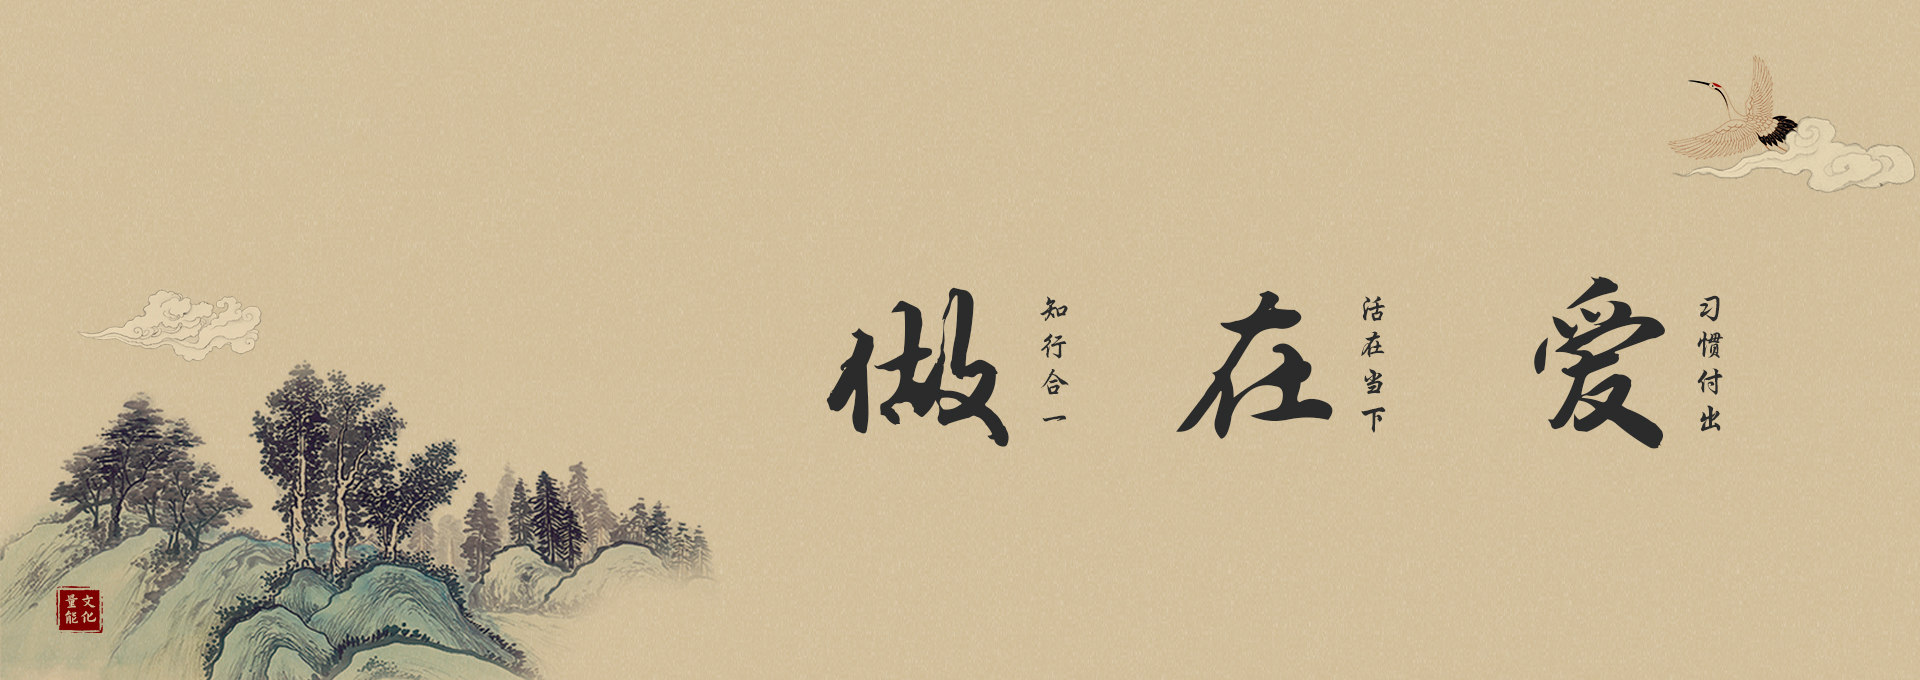 做
知行合一
在
活在当下
爱
习惯付出
文化
量能